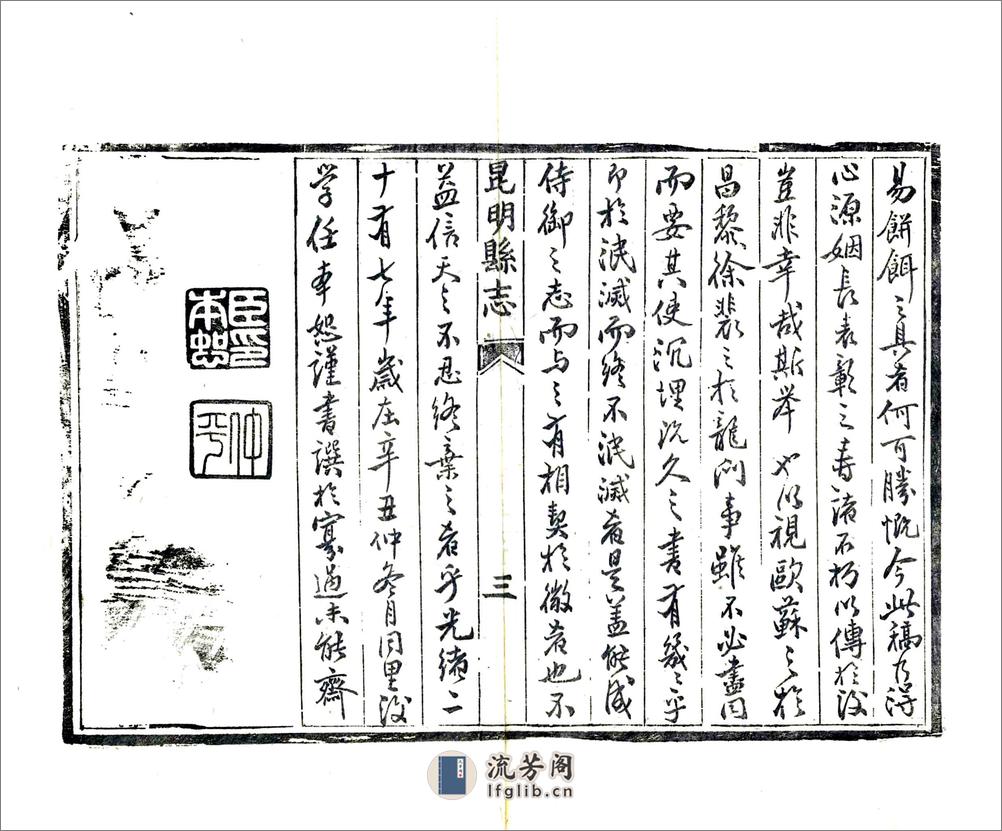 易餅餌之具者何可勝慨今此稿乃得
心源姻長表彰之壽諸不朽以傳於後
豈非幸哉斯舉也以視歐蘇之於
昌黎徐裴之於龍門事雖不必盡同
而要其使沉埋沉久之書有幾幾乎
即於泯滅而終不泯滅者是蓋能成
侍御之志而与之有相契於微者也不
昆明縣志
三
益信天之不忍終棄之者乎光緒二
十有七年歲在辛丑仲冬月同里後
学任本恕謹書譔於寡過未能齋
臣印本恕
仲平
流芳阁
lfglib.cn